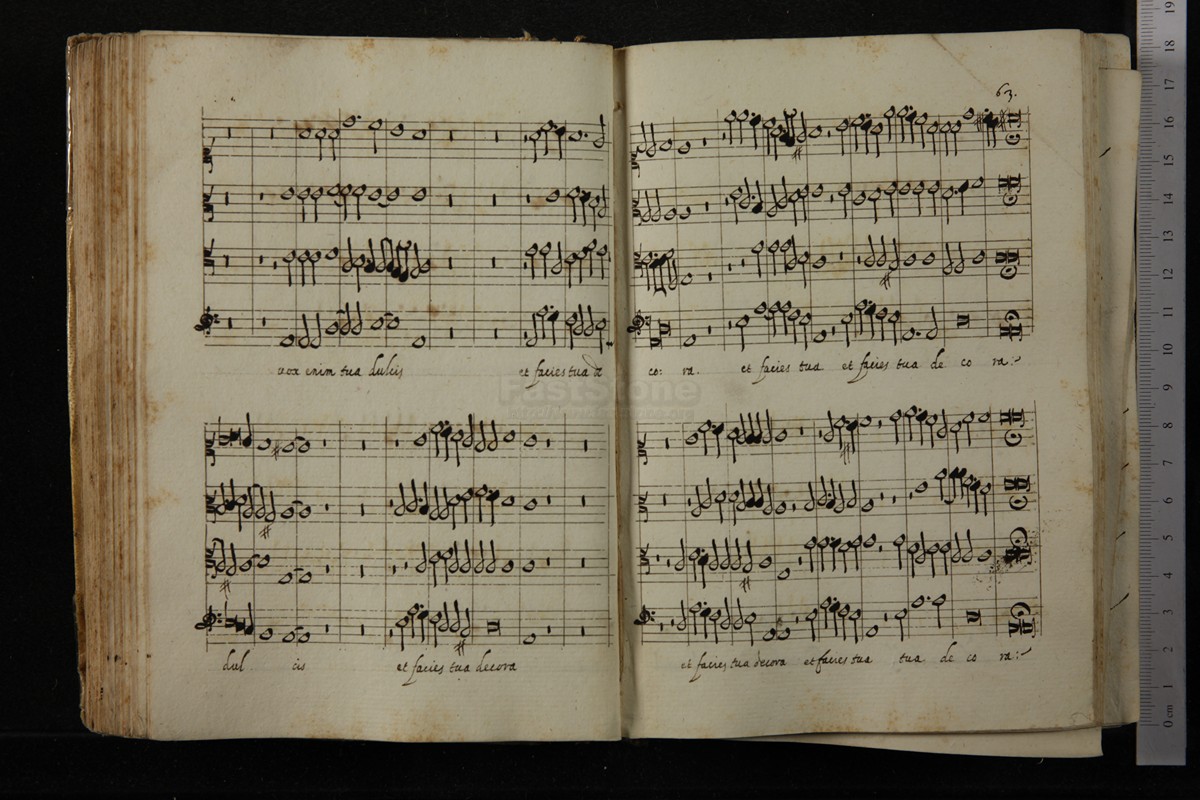 63.
vox enim tua dulcis et facies tua de
co: ra. et facies tua et facies tua de co ra:
dul cis et facies tua decora
et facies tua decora et facies tua tua de co ra:
FastStone
19
18
17
16
15
14
13
12
11
10
9
8
7
6
5
4
3
2
1
0 cm